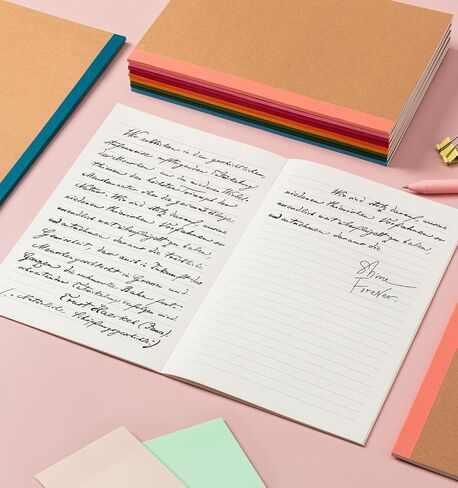 Wir erblicken in der geschichtlichen
stufenweise aufsteigenden Entwickelung
des Menschen aus den niederen Wirbel-
thieren den höchsten Triumph der
Menschennatur über die gesammte übrige
Natur. Wir sind stolz darauf, unsere
niederen thierischen Vorfahren so
unendlich weit überflügelt zu haben,
und entnehmen daraus die tröstliche
Gewissheit, dass auch in Zukunft das
Menschengeschlecht im Grossen und
Ganzen die ruhmvolle Bahn fort-
schreitender Entwickelung verfolgen wird
Ernst Haeckel (Jena).
(Natürliche Schöpfungsgeschichte)
Wir sind stolz darauf, unsere
niederen thierischen Vorfahren so
unendlich weit überflügelt zu haben,
und entnehmen daraus die
Shine
Forever.